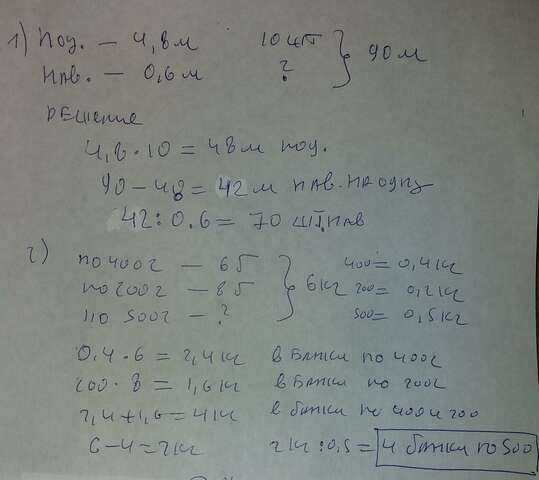 1) Под. — 4,8 м 10 шт } 90 м
нав. — 0,6 м ?
Решение
4,8 · 10 = 48 м под.
90 – 48 = 42 м нав.
42 : 0.6 = 70 шт. нав
2) по 400 г — 6 б } 6 кг 400 = 0,4 кг
по 200 г — 8 б 200 = 0,2 кг
по 500 г — ? 500 = 0,5 кг
0,4 · 6 = 2,4 кг в банки по 400 г
200 · 8 = 1,6 кг в банки по 200 г
2,4 + 1,6 = 4 кг в банки по 400 и 200
6 – 4 = 2 кг 2 кг : 0,5 = 4 банки по 500